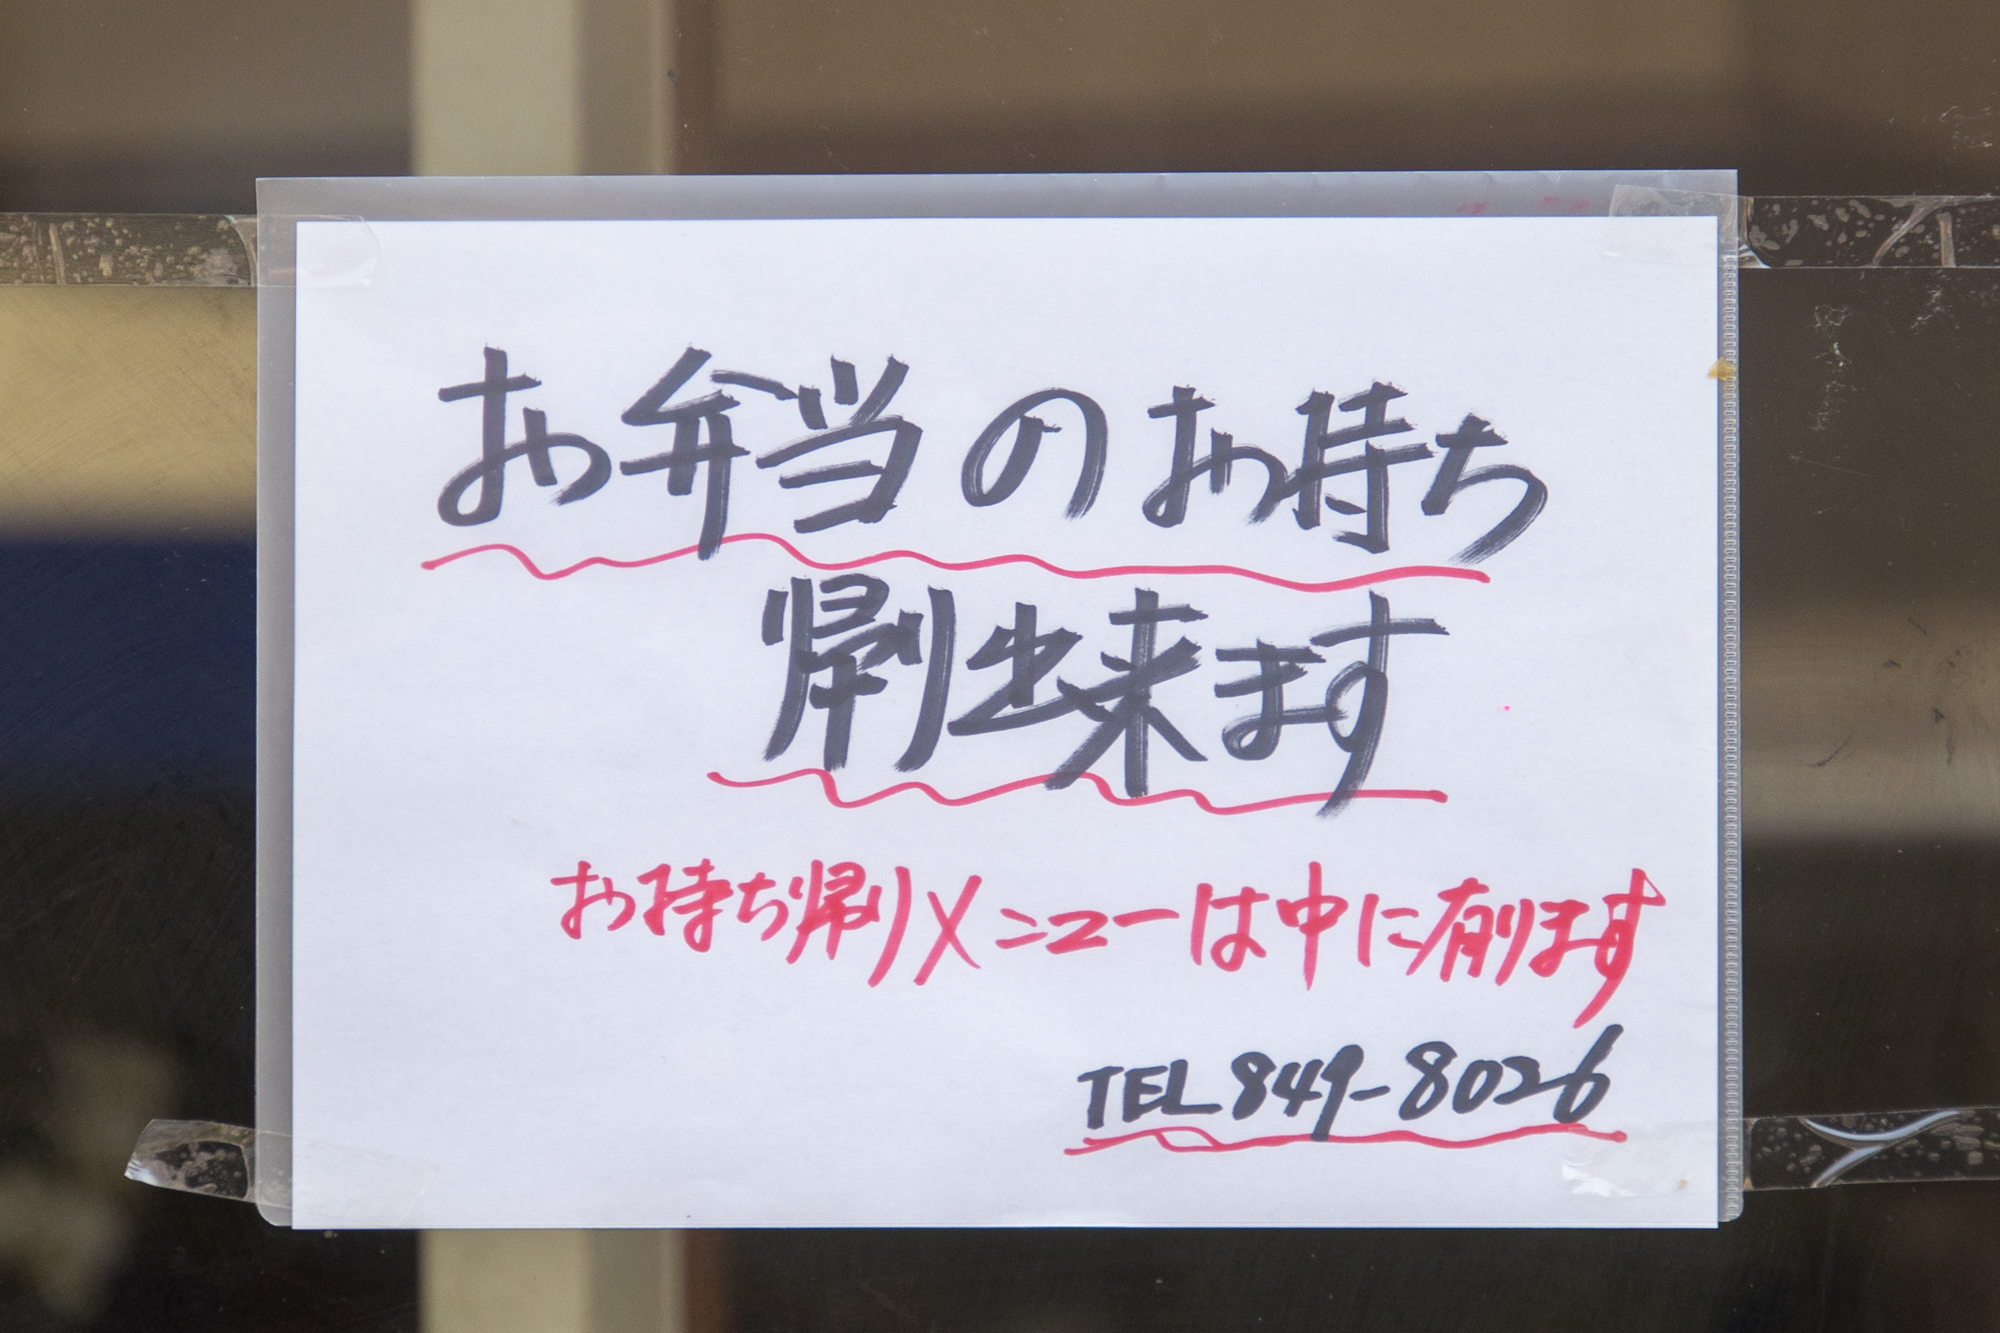 お弁当のお持ち
帰り出来ます
お持ち帰りメニューは中に有ります
TEL 849-8026